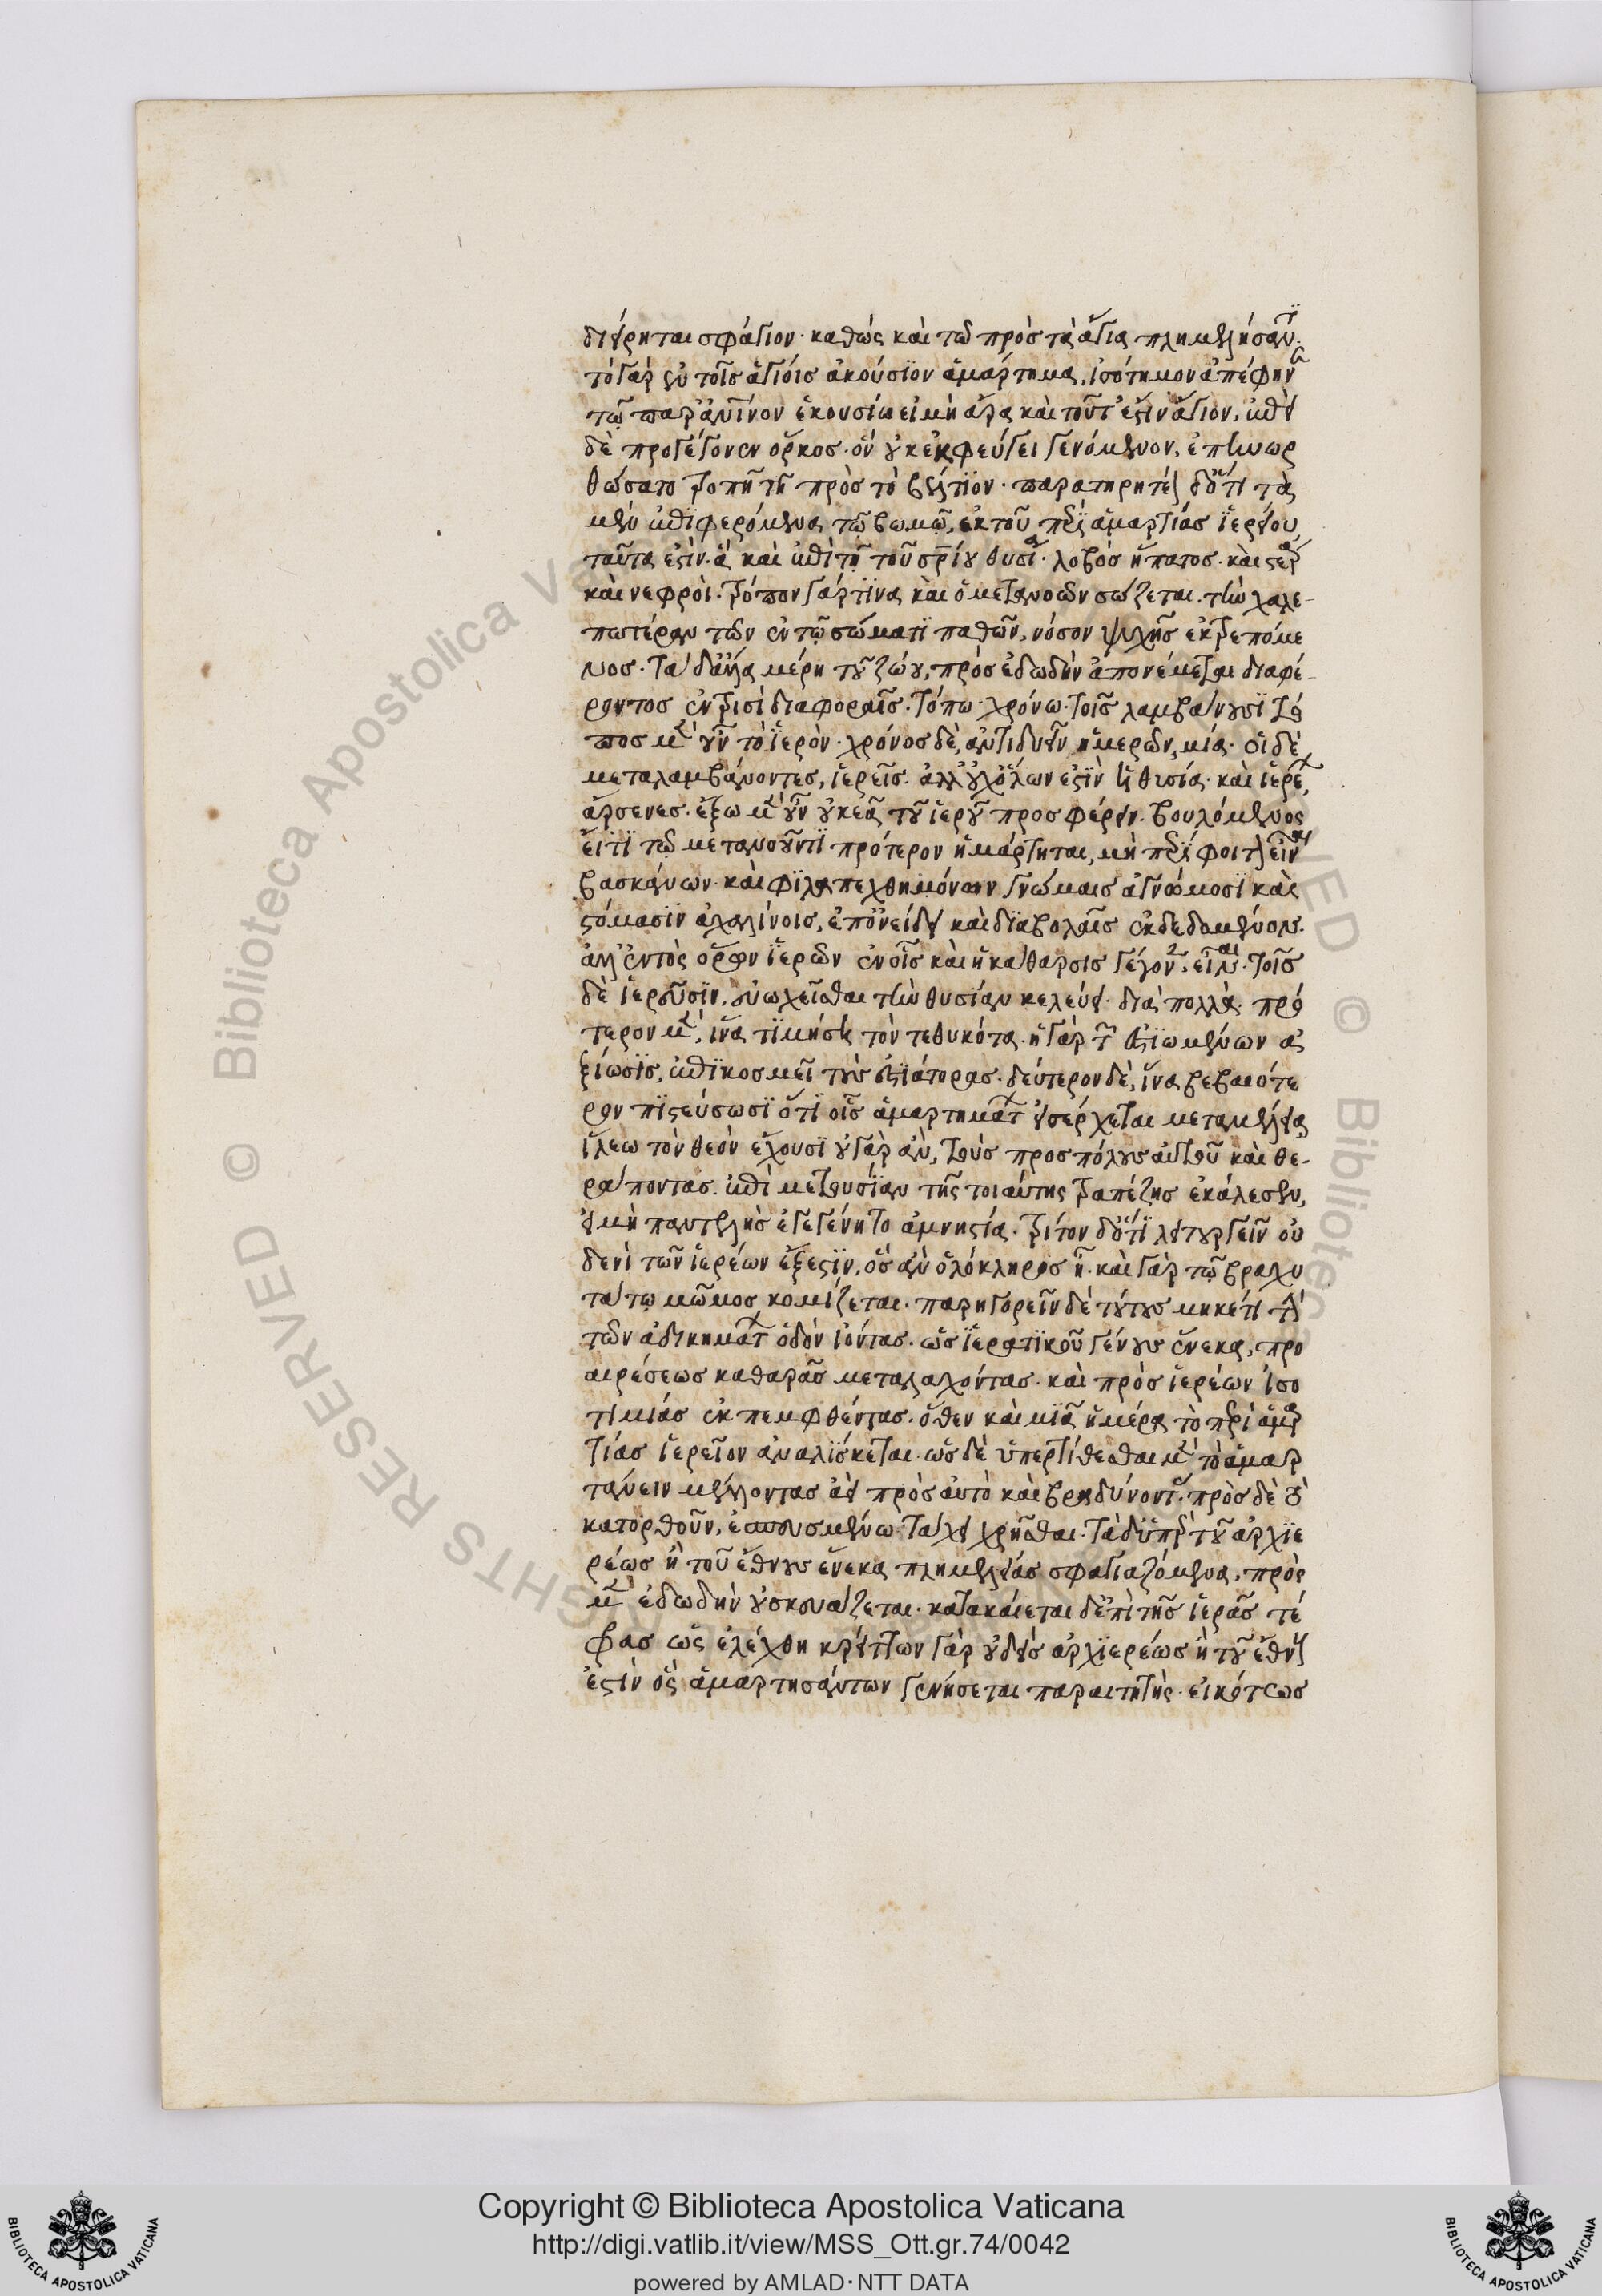 διήρηται σφάγιον· καθὼς καὶ τῶ πρὸς τὰ ἅγια πλημμελήσαντι·
τὸ γὰρ ἐν τοῖς ἁγίοις ἀκούσιον ἁμάρτημα, ἰσότιμον ἀπέφηνε
τῶ παρ' ἀνθρώπινον ἑκουσίω εἰ μὴ ἄρα καὶ τοῦτ' ἐστὶν ἅγιον, ἐπεὶ
δὲ προγέγονεν ὅρκος· ὃν οὐκ ἐκφεύγει γενόμενον, ἐπηνωρ
θώσατο τροπῆ τῆ πρὸς τὸ βέλτιον· παρατηρητέον δ' ὅτι τὰ
μὲν ἐπιφερόμενα τῶ βωμῶ, ἐκ τοῦ περὶ ἁμαρτίας ἱερείου,
ταῦτα ἐστὶν· ἃ καὶ ἐπὶ τῆ τοῦ σωτηρίου θυσία· λοβὸς ἥπατος· καὶ στέαρ
καὶ νεφροὶ· τρόπον γάρ τινα καὶ ὁ μετανοῶν σώζεται· τὴν χαλε-
πωτέραν τῶν ἐν τῶ σώματι παθῶν, νόσον ψυχῆς ἐκτρεπόμε
νος· τὰ δ' ἄλλα μέρη τοῦ ζώου, πρὸς ἐδωδὴν ἀπονέμεται διαφέ-
ροντος ἐν τρισὶ διαφοραῖς· τόπω· χρόνω· τοῖς λαμβάνουσι τό
πος μὲν οὖν τὸ ἱερὸν· χρόνος δὲ, ἀντὶ δυεῖν ἡμερῶν, μία· οἱ δὲ
μεταλαμβάνοντες, ἱερεῖς· ἀλλ' οὐχ ὅλων ἐστὶν ἡ θυσία· καὶ ἱερεῖς
ἄρσενες· ἔξω μὲν οὖν οὐκ ἐᾶ τοῦ ἱεροῦ προσφέρειν· βουλόμενος
εἴ τι τῶ μετανοοῦντι πρότερον ἡμάρτηται, μὴ περιφοιτᾶν εἶναι
βασκάνων· καὶ φιλαπεχθημόνων γνώμαις ἀγνώμοσι καὶ
στόμασιν ἀχαλίνοις, ἐπ' ὀνείδει καὶ διαβολαῖς ἐκδεδομένον·
ἀλλ' ἐντὸς ὅρων ἱερῶν ἐν οἷς καὶ ἡ κάθαρσις γέγονεν, εἶναι· τοῖς
δὲ ἱεροῦσιν, εὐωχεῖσθαι τὴν θυσίαν κελεύει· διὰ πολλὰ· πρό
τερον μὲν, ἵνα τιμήση τὸν τεθυκότα· ἡ γὰρ τῶν ἑστιωμένων ἀ
ξίωσις, ἐπικοσμεῖ τοὺς ἑστιάτορας· δεύτερον δὲ, ἵνα βεβαιότε
ρον πιστεύσωσι ὅτι οἷς ἁμαρτημάτων εἰσέρχεται μεταμέλεια
ἵλεω τὸν θεὸν ἔχουσι οὐ γὰρ ἂν, τοὺς προσπόλους αὐτοῦ καὶ θε-
ράποντας· ἐπὶ μετουσίαν τῆς τοιαύτης τραπέζης ἐκάλεσεν,
εἰ μὴ παντελὴς ἐγεγένητο ἀμνηστία· τρίτον δ' ὅτι λειτουργεῖν οὐ
δενὶ τῶν ἱερέων ἔξεστιν, ὃς ἂν ὁλόκληρος ἦ· καὶ γὰρ τῶ βραχυ
τάτω μῶμος κομίζεται· παρηγορεῖν δὲ τούτους μηκέτι τὴν
τῶν ἀδικημάτων ὁδὸν ἰόντας· ὡς ἱερατικοῦ γένους ἕνεκα, προ
αιρέσεως καθαρᾶς μεταλαχόντας· καὶ πρὸς ἱερέων ἰσο
τιμίας ἐκπεμφθέντας· ὅθεν καὶ μιᾶ ἡμέρα τὸ περὶ ἁμαρ
τίας ἱερεῖον ἀναλίσκεται· ὡς δὲ ὑπερτίθεσθαι μὲν τὸ ἁμαρ
τάνειν μέλλοντας ἀεὶ πρὸς αὐτὸ καὶ βραδύνοντας· πρὸς δὲ τὸ
κατορθοῦν, ἐσπουσμένω· τάχει χρῆσθαι· τὰ δ' ὑπὲρ τοῦ ἀρχιε
ρέως ἢ τοῦ ἔθνους ἕνεκα πλημμελείας σφαγιαζόμενα, πρὸς
μὲν ἐδωδὴν οὐ σκευάζεται· κατακαίεται δ' ἐπὶ τῆς ἱερᾶς τέ
φρας ὡς ἐλέχθη κρείττων γὰρ οὐδεὶς ἀρχιερέως ἢ τοῦ ἔθνους
ἐστὶν ὃς ἁμαρτησάντων γενήσεται παραιτητὴς· εἰκότως
Copyright © Biblioteca Apostolica Vaticana
http://digi.vatlib.it/view/MSS_Ott.gr.74/0042
powered by AMLAD·NTT DATA